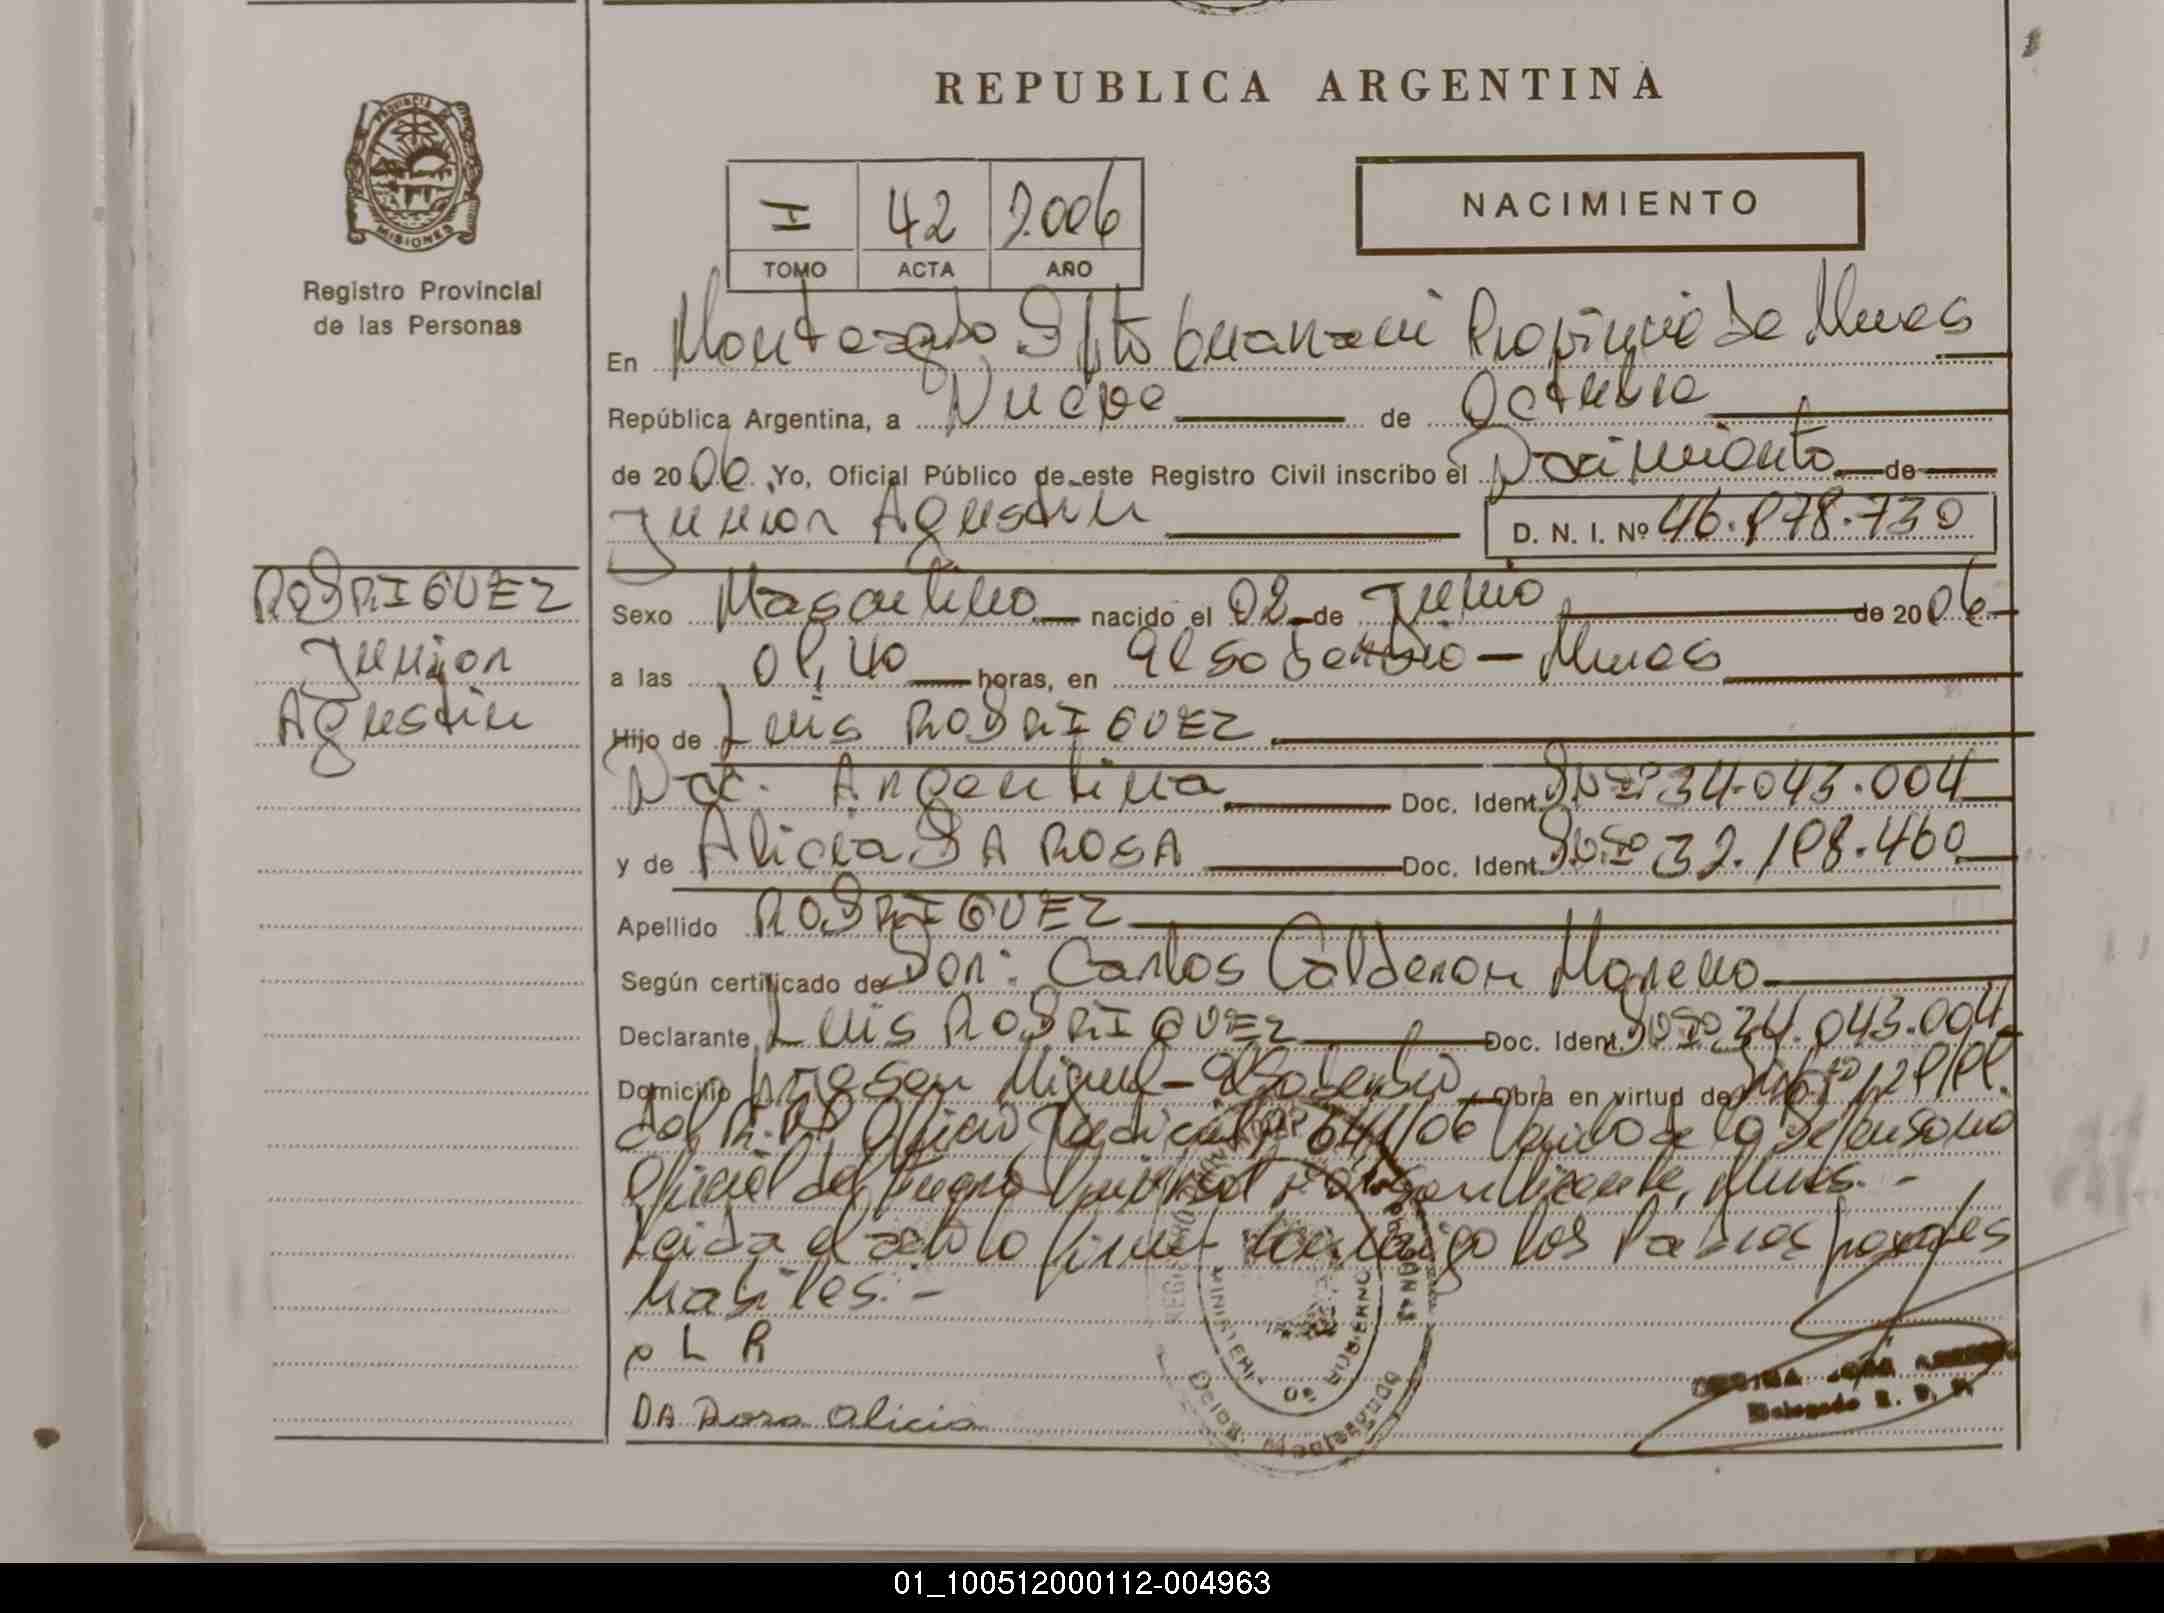 REPUBLICA ARGENTINA
PROVINCIA DE
MISIONES
Registro Provincial
de las Personas
I 42 2.006
TOMO ACTA AÑO
NACIMIENTO
En Monteagudo Dpto Guarani Provincia de Mnes
República Argentina, a Nueve de Octubre
de 2006 Yo, Oficial Público de este Registro Civil inscribo el Nacimiento de
Junior Agustin
D. N. I. Nº 46.878.730
RODRIGUEZ
Junior
Agustin
Sexo Masculino nacido el 02 de Junio de 2006
a las 01,40 horas, en El Soberbio - Mnes
Hijo de Luis RODRIGUEZ
Nac. Argentina Doc. Ident. DNI Nº 34.043.004
y de Alicia DA ROSA Doc. Ident. DNI Nº 32.198.460
Apellido RODRIGUEZ
Según certificado de Don: Carlos Calderon Moreno
Declarante Luis RODRIGUEZ Doc. Ident. DNI Nº 34.043.004
Domicilio San Miguel - El Soberbio Obra en virtud de
del Oficio Judicial 641/06 de la Defensoria
Oficial del San Vicente, Mnes. -
Leida el acta lo firman conmigo los Padres
habiles. -
L R
DA Rosa alicia
MINISTERIO DE GOBIERNO
Deleg. Monteagudo
Delegado R. P. P.
01_100512000112-004963